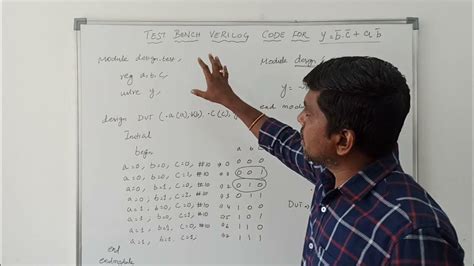 TEST BENCH VERILOG CODE FOR y = b̄.c̄ + a b̄
Module design_test;
reg a,b,c;
wire y;
design DUT (.a(a),
.c(c),
Initial
begin
a=0, b=0, c=0, #10
a=0, b=0, c=1, #10
a=0, b=1, c=0, #10
a=0, b=1, c=1, #10
a=1, b=0, c=0, #10
a=1, b=0, c=1, #10
a=1, b=1, c=0, #10
a=1, b=1, c=1,
end
endmodule
Module design
y=
end modu
a b
0 0 0
0 0 1
0 1 0
0 1 1
1 0 0
1 0 1
1 1 0
1 1 1
DUT